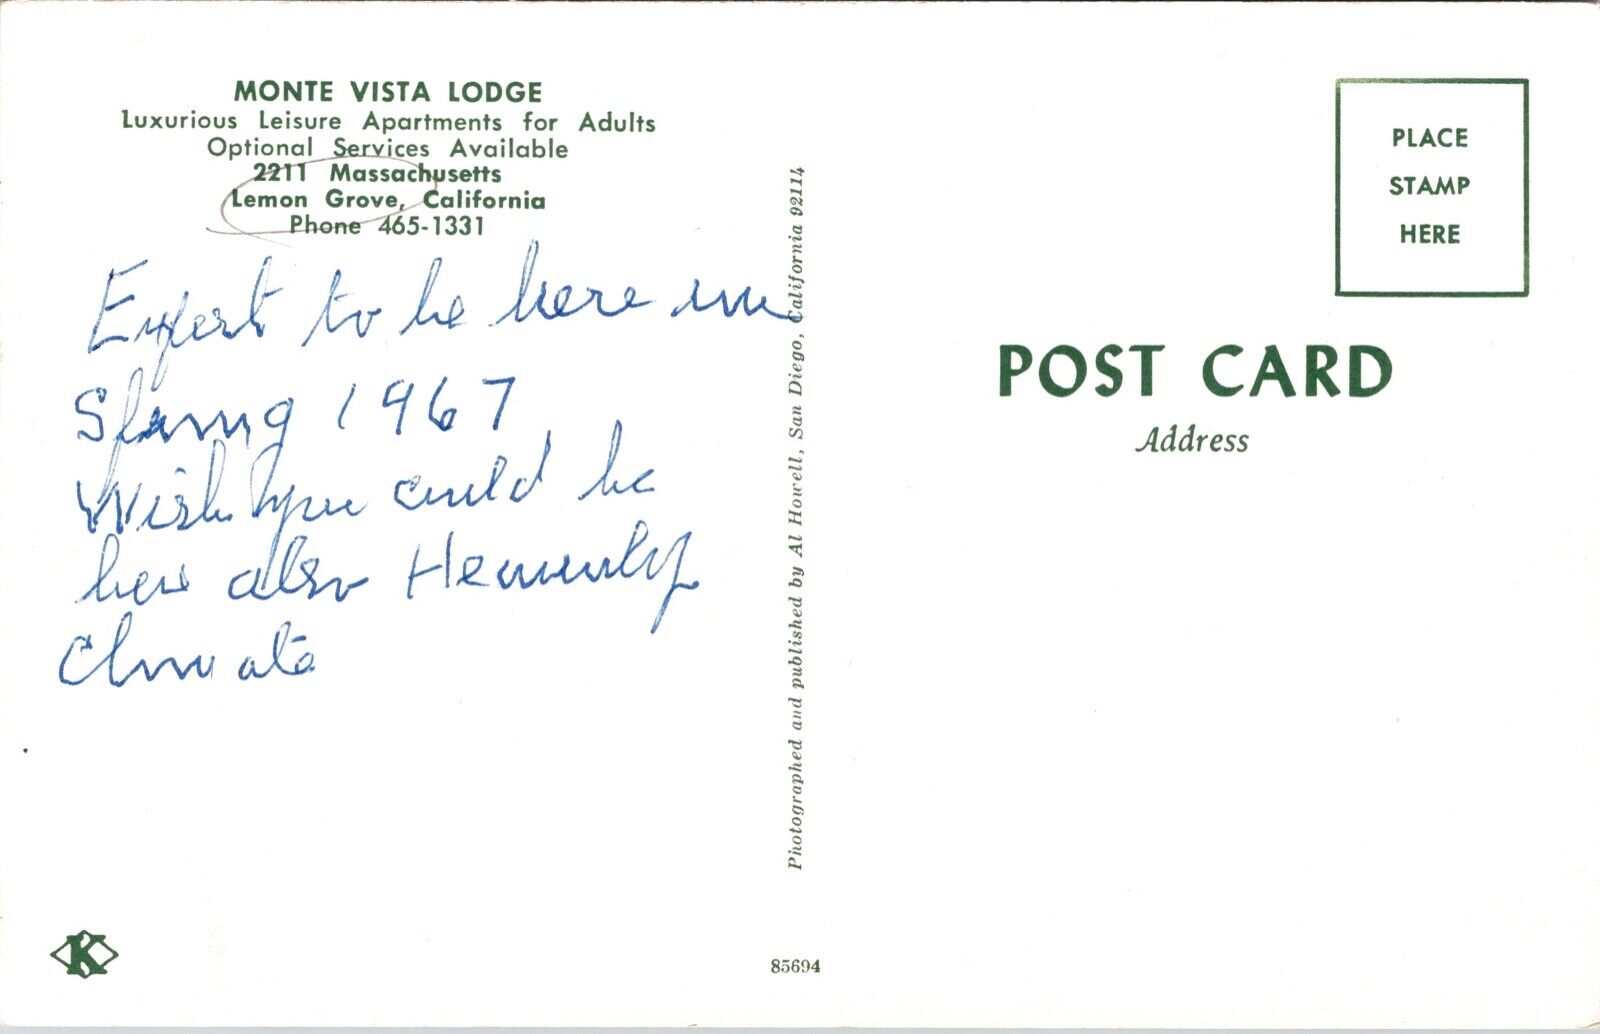 MONTE VISTA LODGE
Luxurious Leisure Apartments for Adults
Optional Services Available
2211 Massachusetts
Lemon Grove, California
Phone 465-1331
Expect to be here in
Spring 1967
Wish you could be
here also Heavenly
Climate
Photographed and published by Al Howell, San Diego, California 92114
K
85694
PLACE
STAMP
HERE
POST CARD
Address